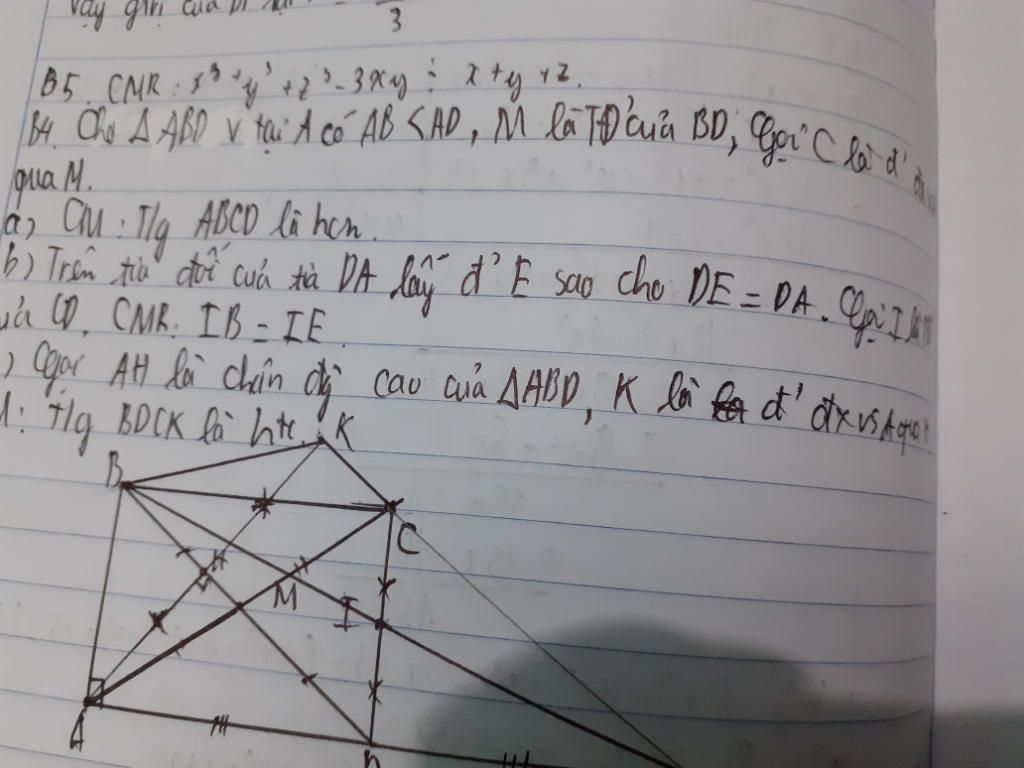 Vậy gtrị của
3
B5. CMR: x³ + y³ + z³ - 3xy ⋮ x + y + z.
B4. Cho Δ ABD v tại A có AB < AD, M là TĐ' của BD, Gọi C là đ'
qua M.
a) CM: T/g ABCD là hcn.
b) Trên tia đối của tia DA lấy đ' E sao cho DE = DA. Gọi I là
của CD. CMR. IB = IE.
) Gọi AH là chân đg cao của ΔABD, K là đ' đx vs A qua H
M: T/g BDCK là htc.
K
B
C
H
M
I
A
D